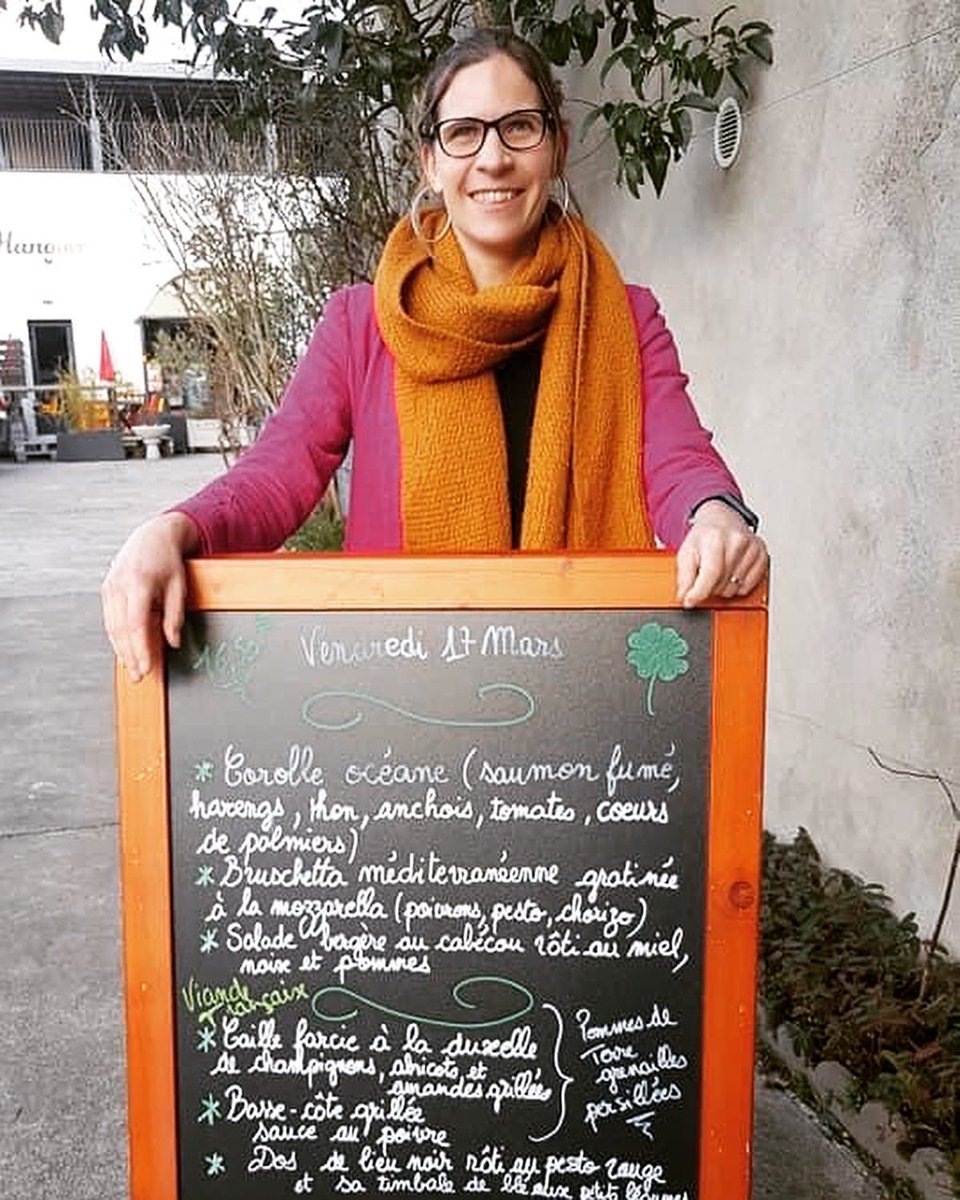 Hangar
16,50
Vendredi 17 Mars
* Corolle océane (saumon fumé,
harengs, thon, anchois, tomates, coeurs
de palmiers)
* Bruschetta méditerranéenne gratinée
à la mozzarella (poivrons, pesto, chorizo)
* Salade bergère au cabécou rôti au miel,
noix et pommes
Viande
Française
* Caille farcie à la duxelle
de champignons, abricots, et
amandes grillées
* Basse-côte grillée
sauce au poivre
Pommes de
Terre
grenailles
persillées
* Dos de lieu noir rôti au pesto rouge
et sa timbale de blé aux petits légumes